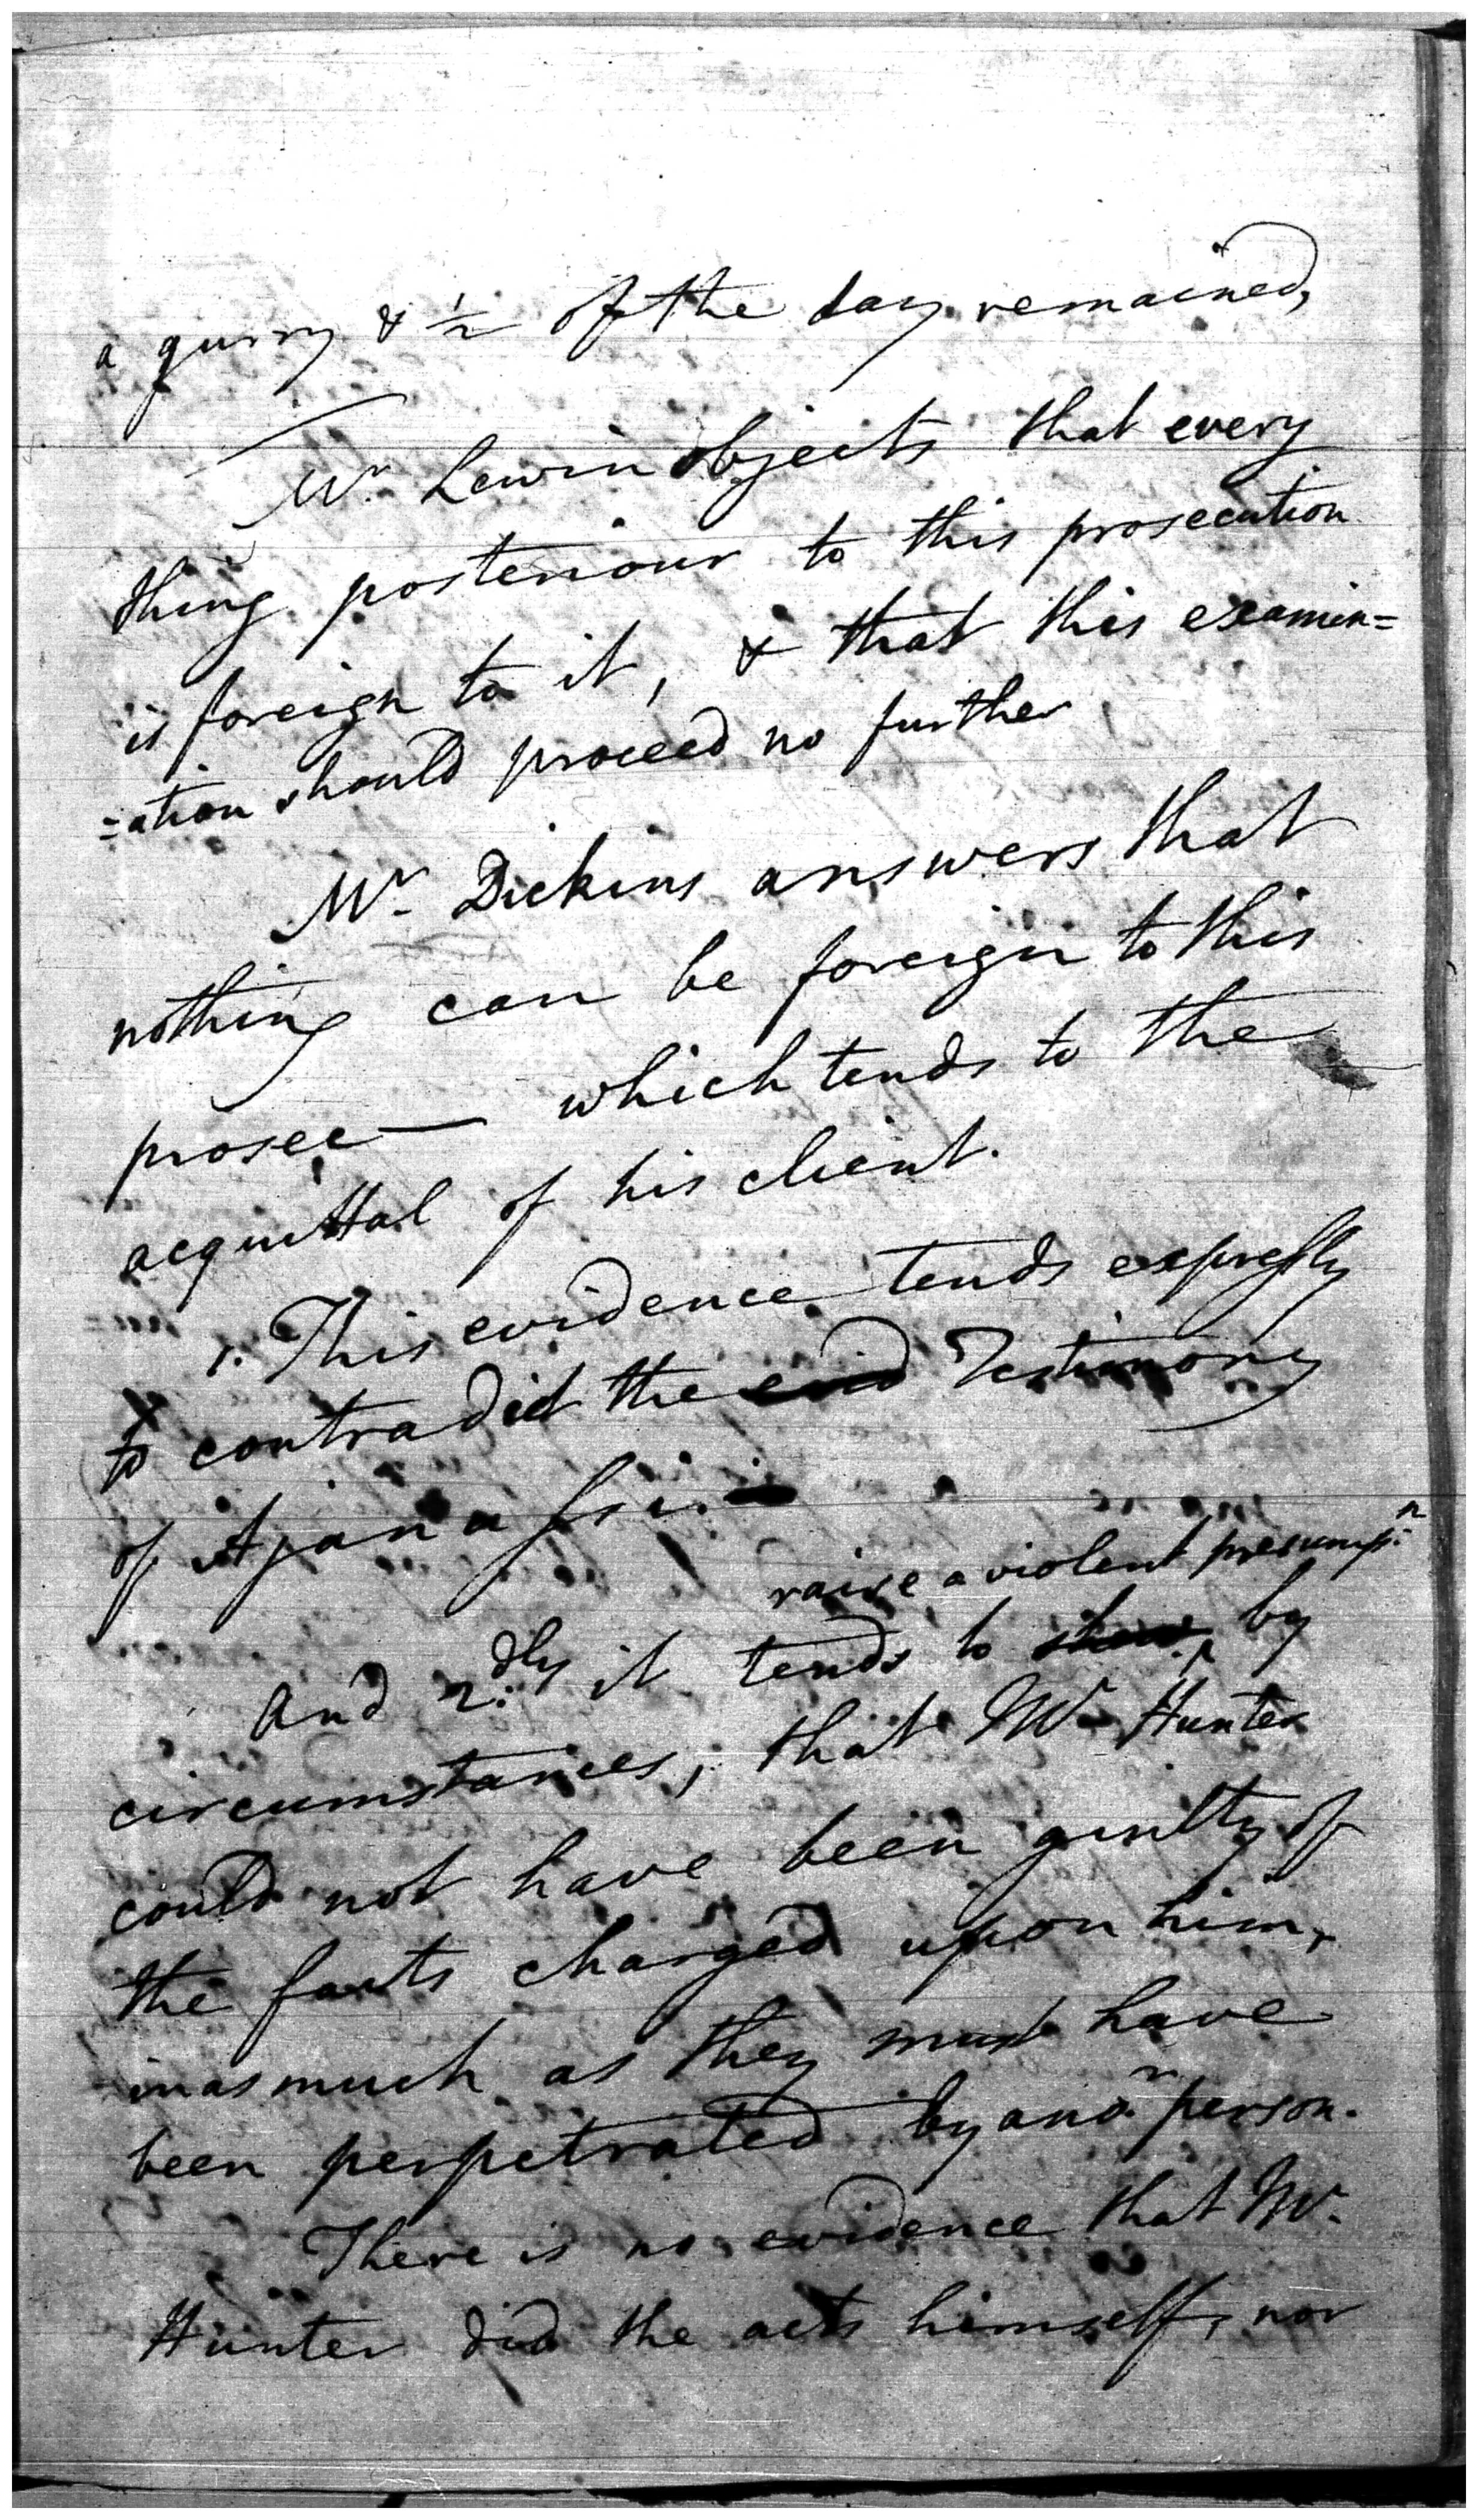 a gurry & ½ of the day remained,
Mr. Lewin objects that every
thing posteriour to this prosecution
is foreign to it, & that this examin=
=ation should proceed no further
Mr. Dickins answers that
nothing can be foreign to this
prosec— which tends to the
acquittal of his client.
1. This evidence tends expressly
to contradict the evid Testimony
of Ajanassi.
raise a violent presump:n
And 2:dly it tends to show, by
circumstances, that Mr Hunter
could not have been guilty of
the facts charged upon him,
inasmuch as they must have
been perpetrated by ano.r person.
There is no evidence that Mr.
Hunter did the acts himself, nor